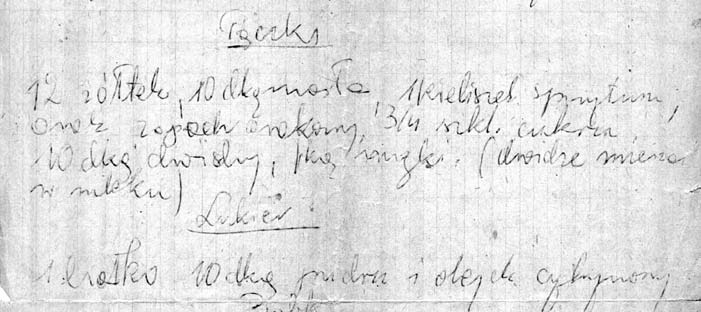 Pączki
12 żółtek, 10 dkg masła, 1 kieliszek spirytusu,
oraz zapach arakowy, 3/4 szkl. cukru,
10 dkg drożdży, 1 kg mąki. (drożdże
w mleku)
Lukier
1 białko 10 dkg pudru i olejek cytrynowy